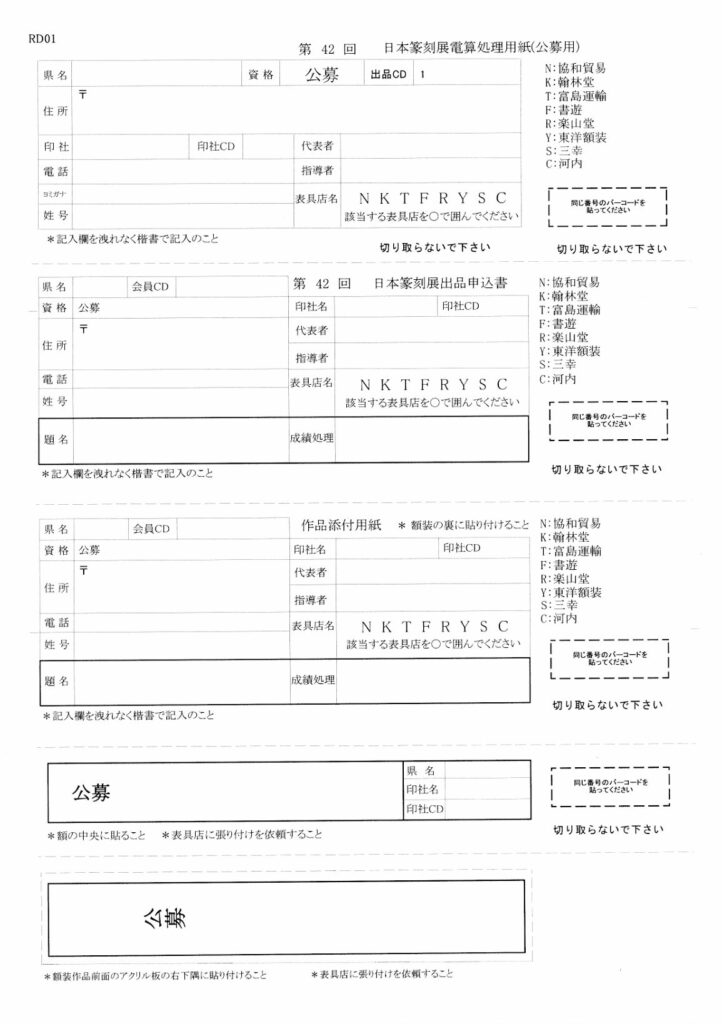 RD01
第 42 回 日本篆刻展電算処理用紙(公募用)
県名 資格 公募 出品CD 1
住所 〒
印社 印社CD 代表者
電話 指導者
ヨミガナ 表具店名 N K T F R Y S C
姓号 該当する表具店を○で囲んでください
N:協和貿易
K:翰林堂
T:富島運輸
F:書遊
R:楽山堂
Y:東洋額装
S:三幸
C:河内
同じ番号のバーコードを
貼ってください
*記入欄を洩れなく楷書で記入のこと
切り取らないで下さい 切り取らないで下さい
第 42 回 日本篆刻展出品申込書
県名 会員CD
資格 公募 印社名 印社CD
住所 〒 代表者
指導者
電話 表具店名 N K T F R Y S C
姓号 該当する表具店を○で囲んでください
題名 成績処理
N:協和貿易
K:翰林堂
T:富島運輸
F:書遊
R:楽山堂
Y:東洋額装
S:三幸
C:河内
同じ番号のバーコードを
貼ってください
*記入欄を洩れなく楷書で記入のこと
切り取らないで下さい
作品添付用紙 *額装の裏に貼り付けること
県名 会員CD
資格 公募 印社名 印社CD
住所 〒 代表者
指導者
電話 表具店名 N K T F R Y S C
姓号 該当する表具店を○で囲んでください
題名 成績処理
N:協和貿易
K:翰林堂
T:富島運輸
F:書遊
R:楽山堂
Y:東洋額装
S:三幸
C:河内
同じ番号のバーコードを
貼ってください
*記入欄を洩れなく楷書で記入のこと
切り取らないで下さい
公募
県名
印社名
印社CD
同じ番号のバーコードを
貼ってください
*額の中央に貼ること *表具店に張り付けを依頼すること
切り取らないで下さい
公募
*額装作品前面のアクリル板の右下隅に貼り付けること *表具店に張り付けを依頼すること